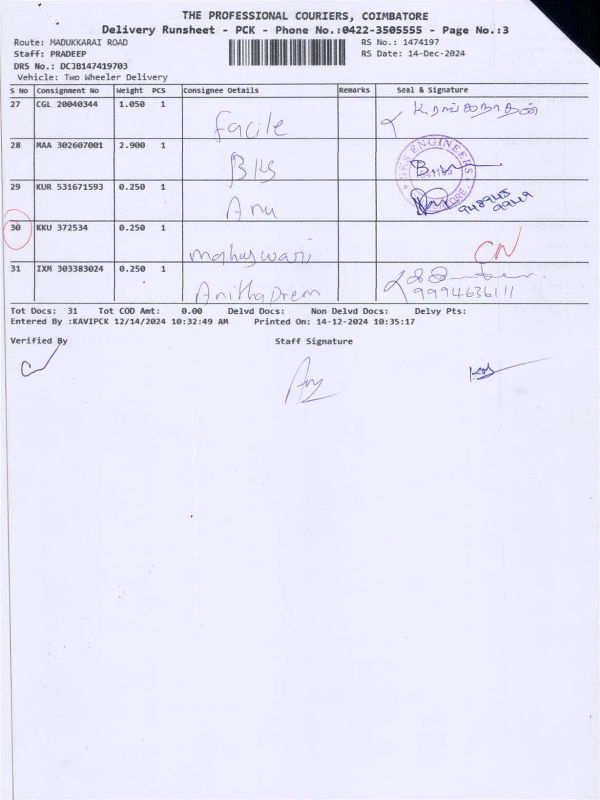 THE PROFESSIONAL COURIERS, COIMBATORE
Delivery Runsheet - PCK - Phone No.:0422-3505555 - Page No.:3
Route: MADUKKARAI ROAD RS No.: 1474197
Staff: PRADEEP RS Date: 14-Dec-2024
DRS No.: DCJB147419703
Vehicle: Two Wheeler Delivery
S No Consignment No Weight PCS Consignee Details Remarks Seal & Signature
27 CGL 20040344 1.050 1 Facile
28 MAA 302607001 2.900 1 BKS
ENGINEERS
29 KUR 531671593 0.250 1 Anu
30 KKU 372534 0.250 1 mahuswari CN
31 IXM 303383024 0.250 1 Anithaprem 9994636111
Tot Docs: 31 Tot COD Amt: 0.00 Delvd Docs: Non Delvd Docs: Delvy Pts:
Entered By :KAVIPCK 12/14/2024 10:32:49 AM Printed On: 14-12-2024 10:35:17
Verified By Staff Signature